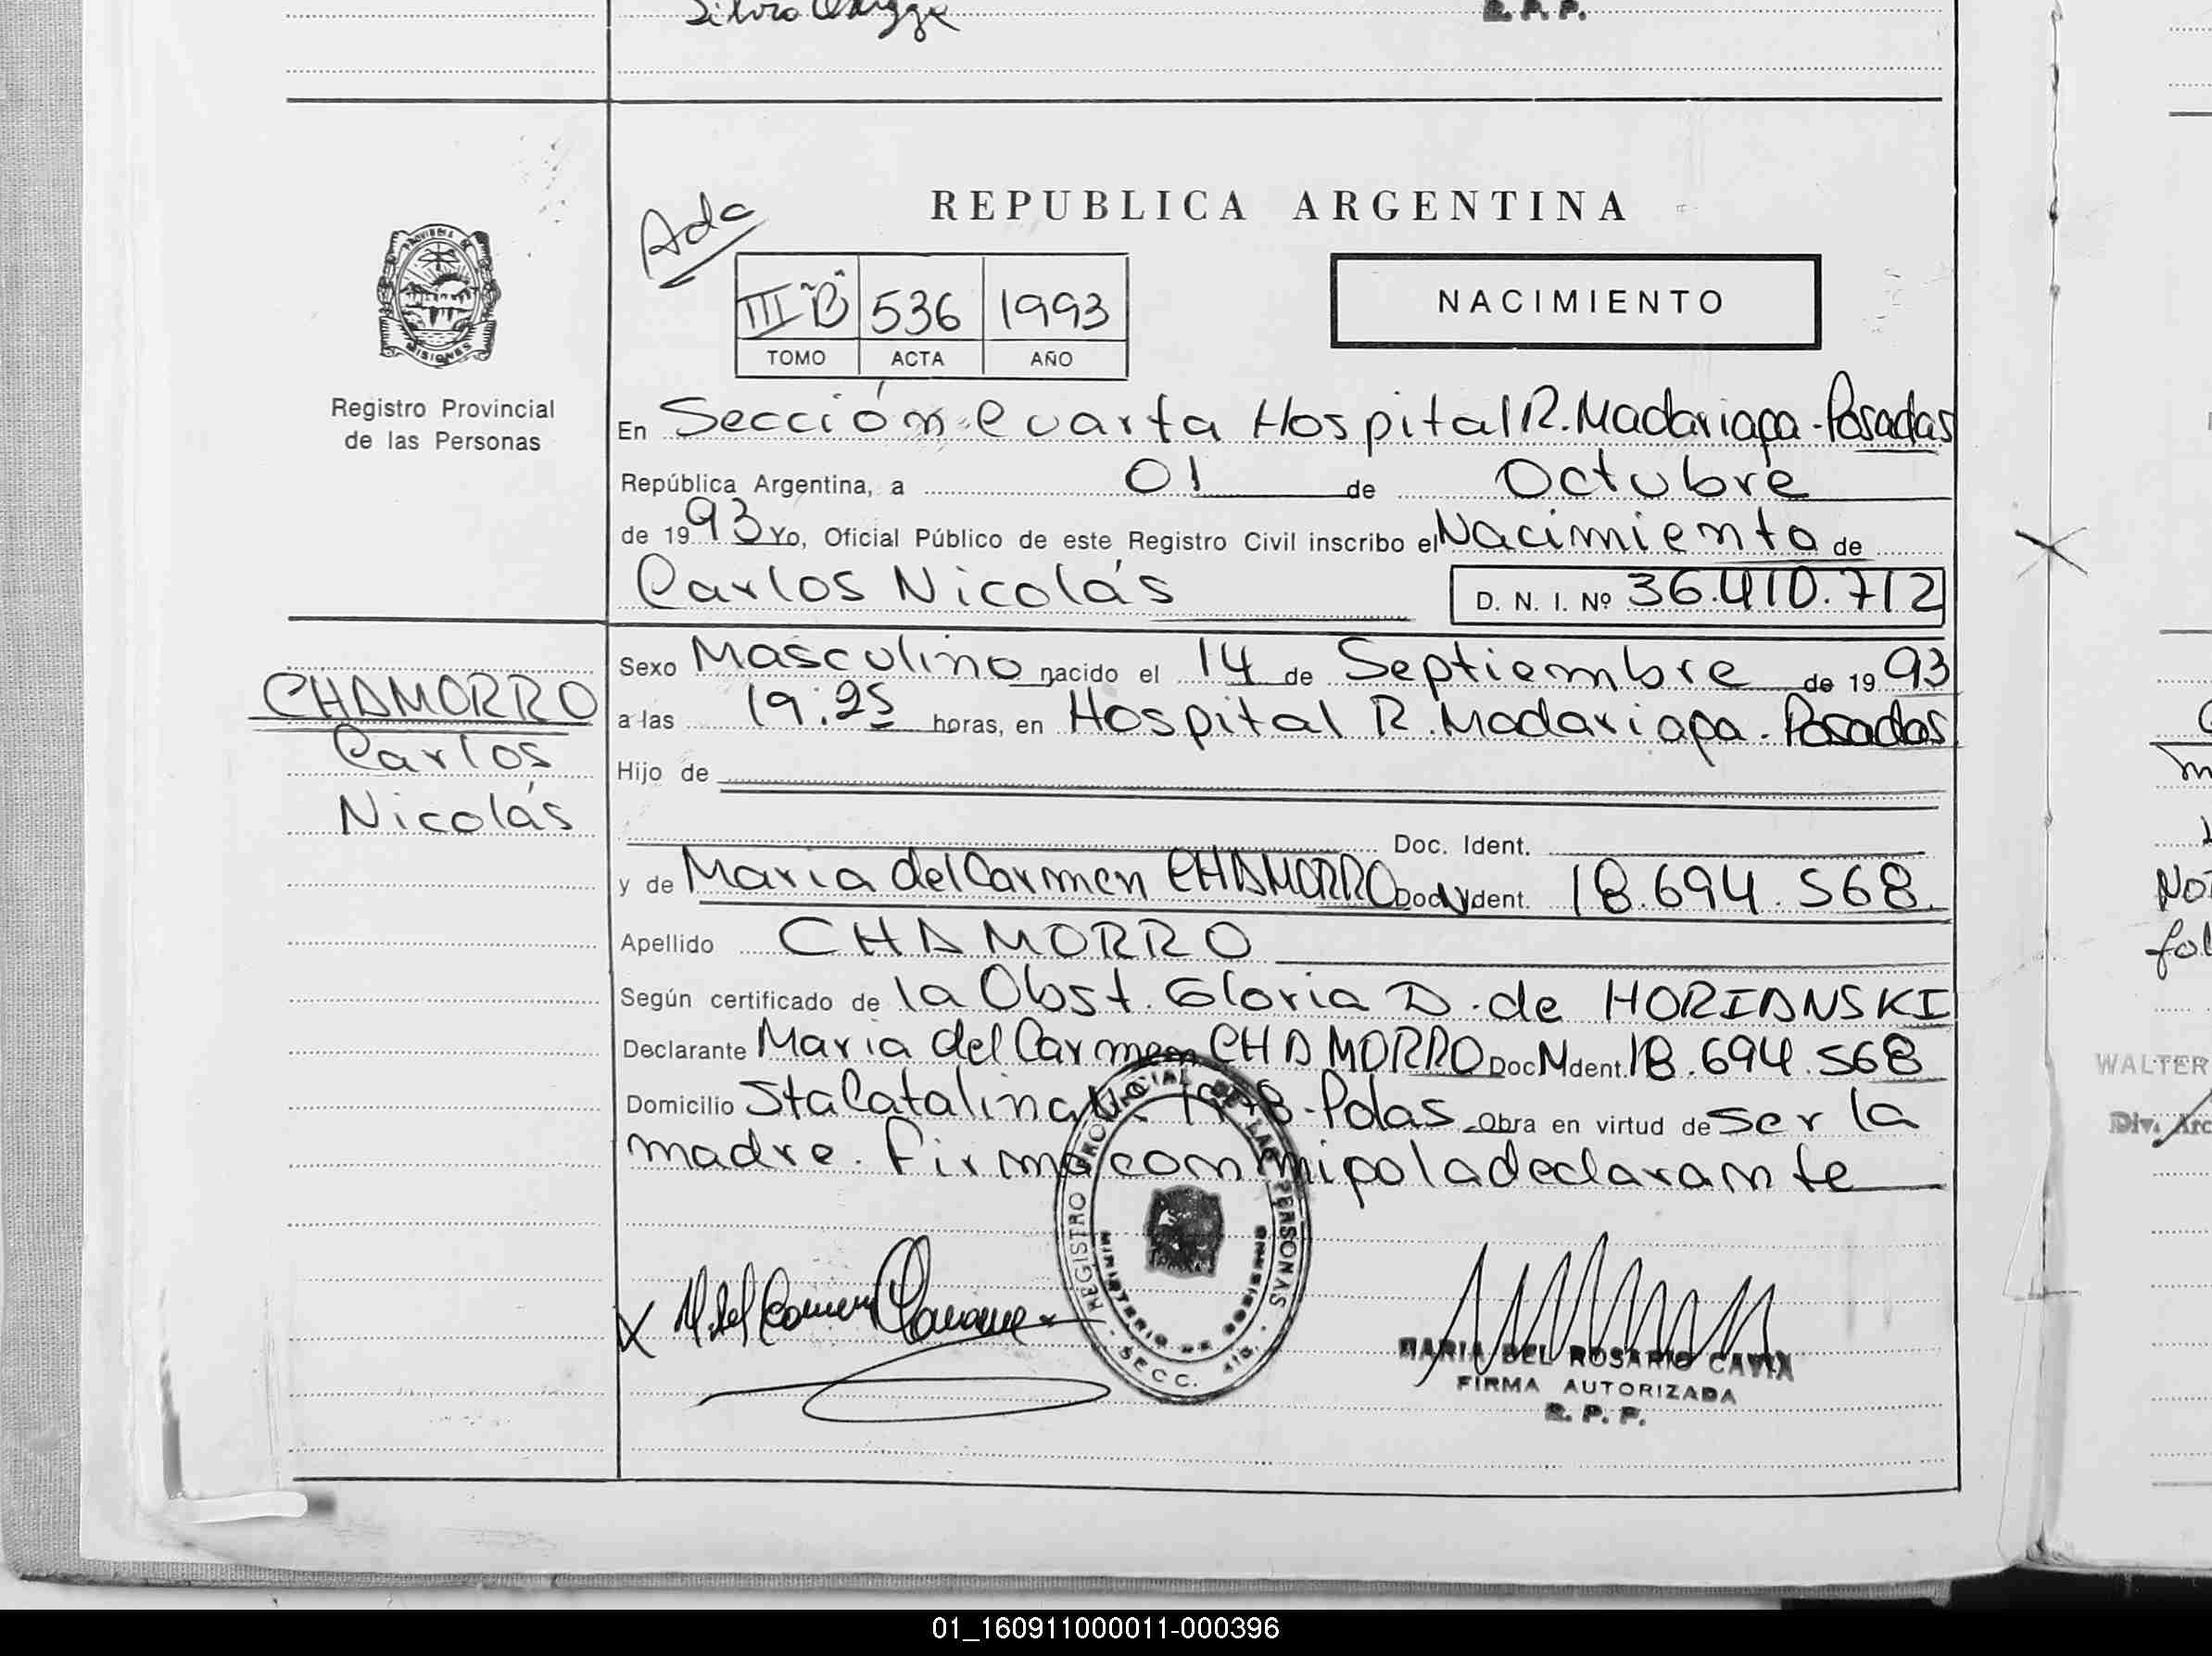 R. P. P.
REPUBLICA ARGENTINA
Ada
III "B"
536
1993
TOMO
ACTA
AÑO
NACIMIENTO
PROVINCIA DE
MISIONES
Registro Provincial
de las Personas
En Sección Cuarta Hospital R. Madariaga - Posadas
República Argentina, a 01 de Octubre
de 1993 Yo, Oficial Público de este Registro Civil inscribo el Nacimiento de
Carlos Nicolás D. N. I. Nº 36.410.712
CHAMORRO
Carlos
Nicolás
Sexo Masculino nacido el 14 de Septiembre de 1993
a las 19:25 horas, en Hospital R. Madariaga. Posadas
Hijo de
Doc. Ident.
y de Maria del Carmen CHAMORRO Doc. Ident. 18.694.568.
Apellido CHAMORRO
Según certificado de la Obst. Gloria D. de HORIANSKI
Declarante Maria del Carmen CHAMORRO Doc. Ident. 18.694.568
Domicilio Sta Catalina - Pdas Obra en virtud de ser la
madre. Firma conmigo la declarante
REGISTRO PROVINCIAL DE LAS PERSONAS
MINISTERIO DE GOBIERNO
SECC. 4ta.
MARIA DEL ROSARIO CAVIA
FIRMA AUTORIZADA
R. P. P.
WALTER
Div. Arc
01_160911000011-000396